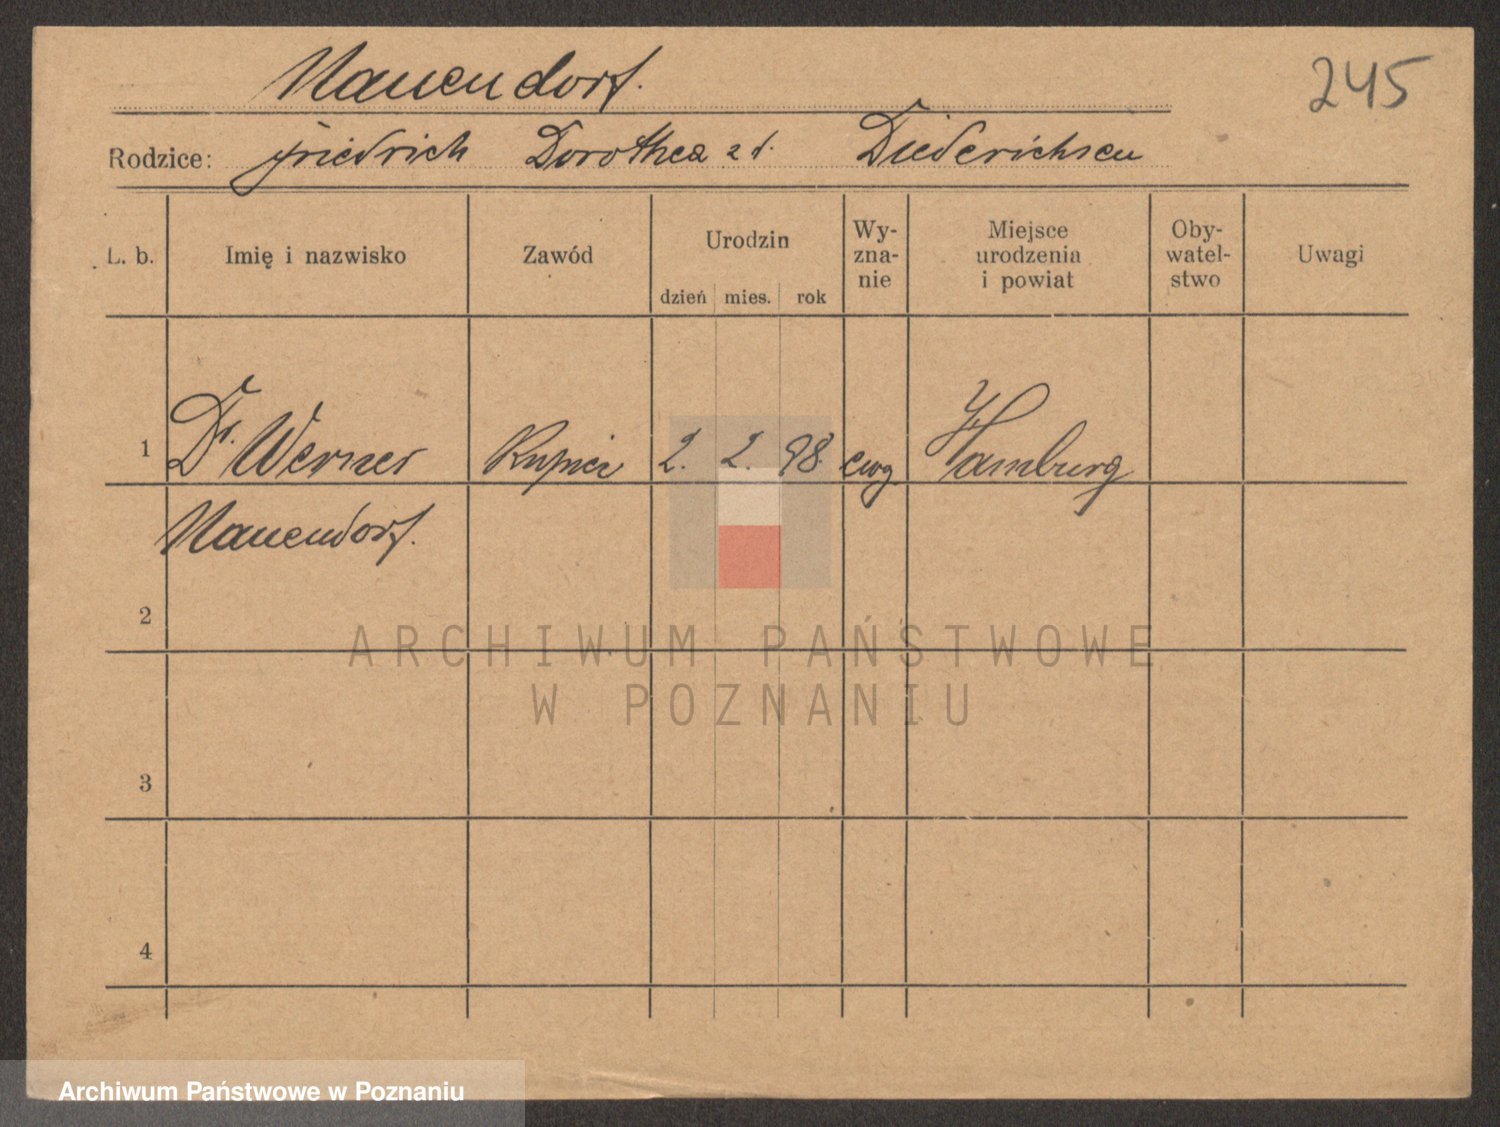 Nauendorf.
245
Rodzice: Friedrich Dorothea z d. Diederichsen
L. b. Imię i nazwisko Zawód Urodzin dzień mies. rok Wy-zna-nie Miejsce urodzenia i powiat Oby-watel-stwo Uwagi
1 Dr. Werner Kupiec 2. 2. 98. ewg Hamburg
Nauendorf.
2
ARCHIWUM PAŃSTWOWE
W POZNANIU
3
4
Archiwum Państwowe w Poznaniu